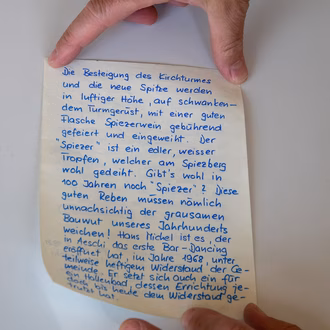 Die Besteigung des Kirchturmes
und die neue Spitze werden
in luftiger Höhe, auf schwanken-
dem Turmgerüst, mit einer guten
Flasche Spiezerwein gebührend
gefeiert und eingeweiht. Der
"Spiezer" ist ein edler, weisser
Tropfen, welcher am Spiezberg
wohl gedeiht. Gibt's wohl in
100 Jahren noch "Spiezer"? Diese
guten Reben müssen nämlich
unnachsichtig der grausamen
Bauwut unseres Jahrhunderts
weichen! Hans Michel ist es, der
in Aeschi das erste Bar-Dancing
eröffnet hat, im Jahre 1968, unter
teilweise heftigem Widerstand der Ge-
meinde. Er setzt sich auch ein für
ein Hallenbad, dessen Errichtung je-
doch bis heute dem Widerstand ge-
trotzt hat.